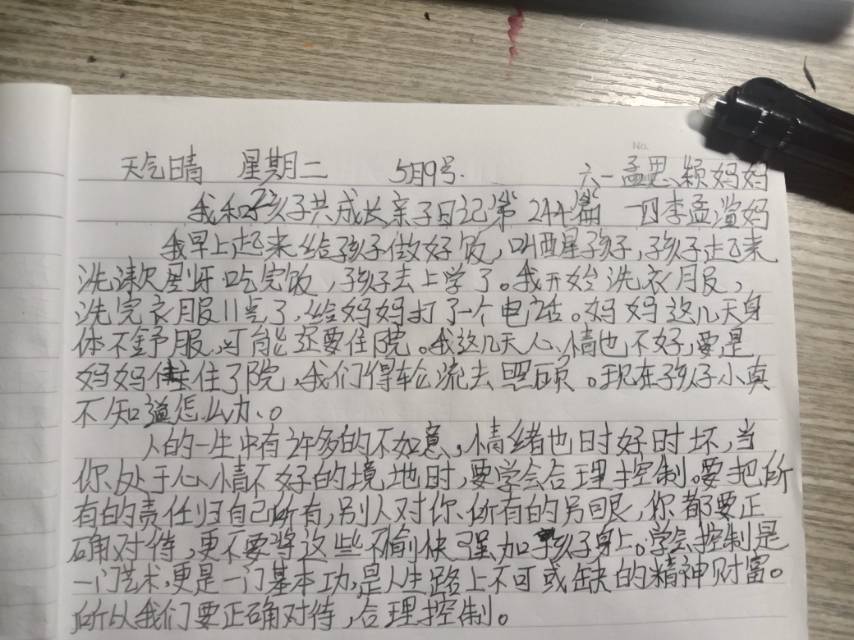 No.
天气晴 星期二 5月9号. 六一孟思颖妈妈
我和孩子共成长亲子日记第244篇 四李孟滢妈
我早上起来给孩子做好饭,叫醒孩子,孩子起来
洗漱刷牙吃完饭,孩子去上学了。我开始洗衣服,
洗完衣服八点了,给妈妈打了一个电话。妈妈这几天身
体不舒服,可能还要住院。我这几天心情也不好,要是
妈妈住了院,我们得轮流去照顾。现在孩子小真
不知道怎么办。
人的一生中有许多的不如意,情绪也时好时坏,当
你处于心情不好的境地时,要学会合理控制。要把所
有的责任归自己所有,别人对你所有的另眼,你都要正
确对待,更不要将这些不愉快强加孩子身上。学会控制是
一门艺术,更是一门基本功,是人生路上不可或缺的精神财富。
所以我们要正确对待,合理控制。